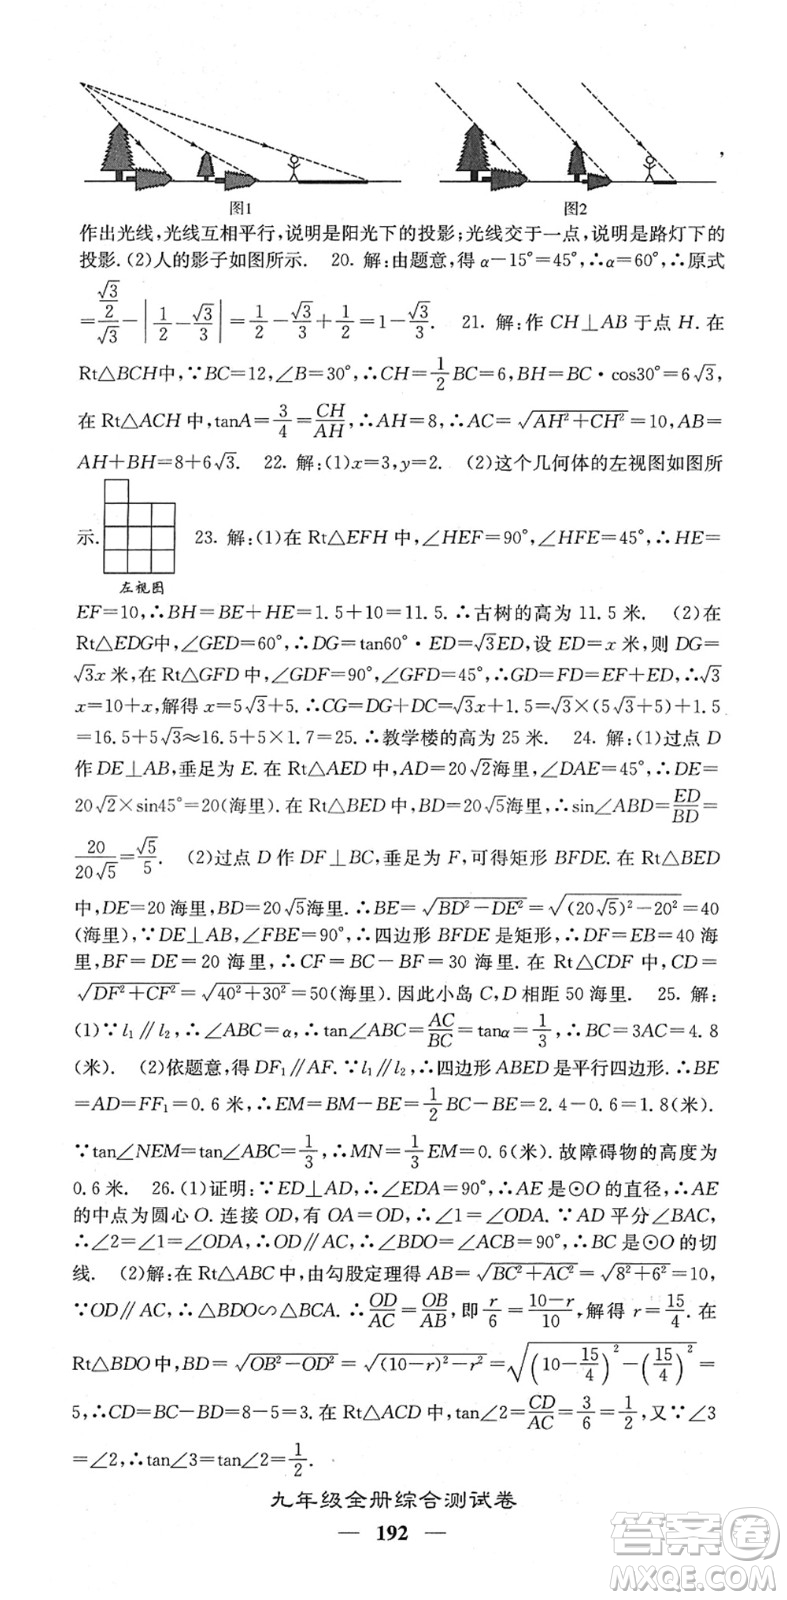 图1 图2
作出光线,光线互相平行,说明是阳光下的投影;光线交于一点,说明是路灯下的
投影.(2)人的影子如图所示. 20. 解:由题意,得 α-15°=45°,∴α=60°,∴原式
=(√3/2)/√3-|1/2-√3/3|=1/2-√3/3+1/2=1-√3/3. 21. 解:作 CH⊥AB 于点 H. 在
Rt△BCH中,∵BC=12,∠B=30°,∴CH=1/2BC=6,BH=BC·cos30°=6√3,
在 Rt△ACH 中,tanA=3/4=CH/AH,∴AH=8,∴AC=√(AH²+CH²)=10,AB=
AH+BH=8+6√3. 22. 解:(1)x=3,y=2. (2)这个几何体的左视图如图所
示. 23. 解:(1)在 Rt△EFH 中,∠HEF=90°,∠HFE=45°,∴HE=
左视图
EF=10,∴BH=BE+HE=1.5+10=11.5.∴古树的高为 11.5 米. (2)在
Rt△EDG中,∠GED=60°,∴DG=tan60°·ED=√3ED,设 ED=x 米,则 DG=
√3x 米,在 Rt△GFD 中,∠GDF=90°,∠GFD=45°,∴GD=FD=EF+ED,∴√3
x=10+x,解得 x=5√3+5.∴CG=DG+DC=√3x+1.5=√3×(5√3+5)+1.5
=16.5+5√3≈16.5+5×1.7=25.∴教学楼的高为 25 米. 24. 解:(1)过点 D
作 DE⊥AB,垂足为 E.在 Rt△AED 中,AD=20√2海里,∠DAE=45°,∴DE=
20√2×sin45°=20(海里).在 Rt△BED 中,BD=20√5海里,∴sin∠ABD=ED/BD=
20/(20√5)=√5/5. (2)过点 D 作 DF⊥BC,垂足为 F,可得矩形 BFDE.在 Rt△BED
中,DE=20 海里,BD=20√5海里.∴BE=√(BD²-DE²)=√((20√5)²-20²)=40
(海里),∵DE⊥AB,∠FBE=90°,∴四边形 BFDE 是矩形,∴DF=EB=40 海
里,BF=DE=20 海里,∴CF=BC-BF=30 海里.在 Rt△CDF 中,CD=
√(DF²+CF²)=√(40²+30²)=50(海里).因此小岛 C,D 相距 50 海里. 25. 解:
(1)∵l₁∥l₂,∴∠ABC=α,∴tan∠ABC=AC/BC=tanα=1/3,∴BC=3AC=4.8
(米). (2)依题意,得 DF₁∥AF.∵l₁∥l₂,∴四边形 ABED 是平行四边形.∴BE
=AD=FF₁=0.6 米,∴EM=BM-BE=1/2BC-BE=2.4-0.6=1.8(米).
∵tan∠NEM=tan∠ABC=1/3,∴MN=1/3EM=0.6(米).故障碍物的高度为
0.6 米. 26.(1)证明:∵ED⊥AD,∴∠EDA=90°,∴AE 是⊙O 的直径,∴AE
的中点为圆心 O. 连接 OD,有 OA=OD,∴∠1=∠ODA.∵AD 平分∠BAC,
∴∠2=∠1=∠ODA,∴OD∥AC,∴∠BDO=∠ACB=90°,∴BC 是⊙O 的切
线. (2)解:在 Rt△ABC 中,由勾股定理得 AB=√(BC²+AC²)=√(8²+6²)=10.
∵OD∥AC,∴△BDO∽△BCA.∴OD/AC=OB/AB,即r/6=(10-r)/10,解得 r=15/4. 在
Rt△BDO 中,BD=√(OB²-OD²)=√((10-r)²-r²)=√((10-15/4)²-(15/4)²)=
5,∴CD=BC-BD=8-5=3.在 Rt△ACD 中,tan∠2=CD/AC=3/6=1/2,又∵∠3
=∠2,∴tan∠3=tan∠2=1/2.
九年级全册综合测试卷
— 192 —
答案圈
MXQE.COM